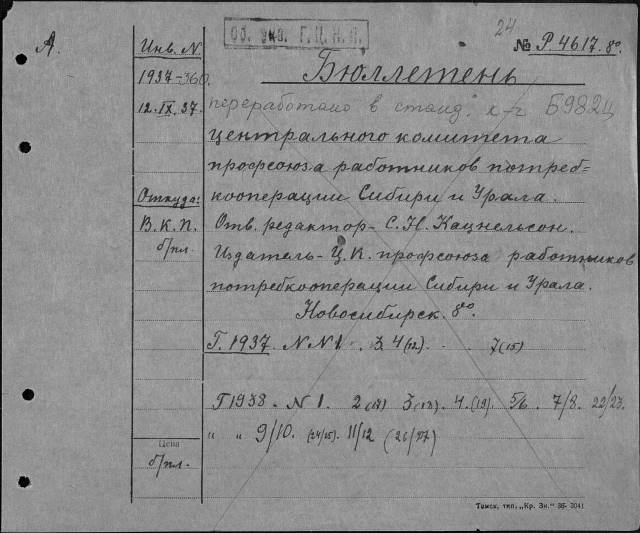 Об. указ. Г.Ц.К.П.
24
А.
Инв. N.
№ Р.4617.8°.
1937-360.
Бюллетень
12.IX.37.
переработано в станд. к-г Б982ц
центрального комитета
профсоюза работников потреб=
Откуда:
кооперации Сибири и Урала.
В.К.П.
Отв. редактор - С.Н. Кацнельсон.
б/пл.
Издатель - Ц.К. профсоюза работников
потребкооперации Сибири и Урала.
Новосибирск. 8°.
Г. 1937. NN1. 3. 4(12). . 7(15)
Г1938. - N 1. 2 3(18). 4.(19). 5/6. 7/8. 22/23.
" " 9/10. (24/25). 11/12 (26/27)
Цена
б/пл.
Томск, тип. „Кр. Зн." 36- 3041